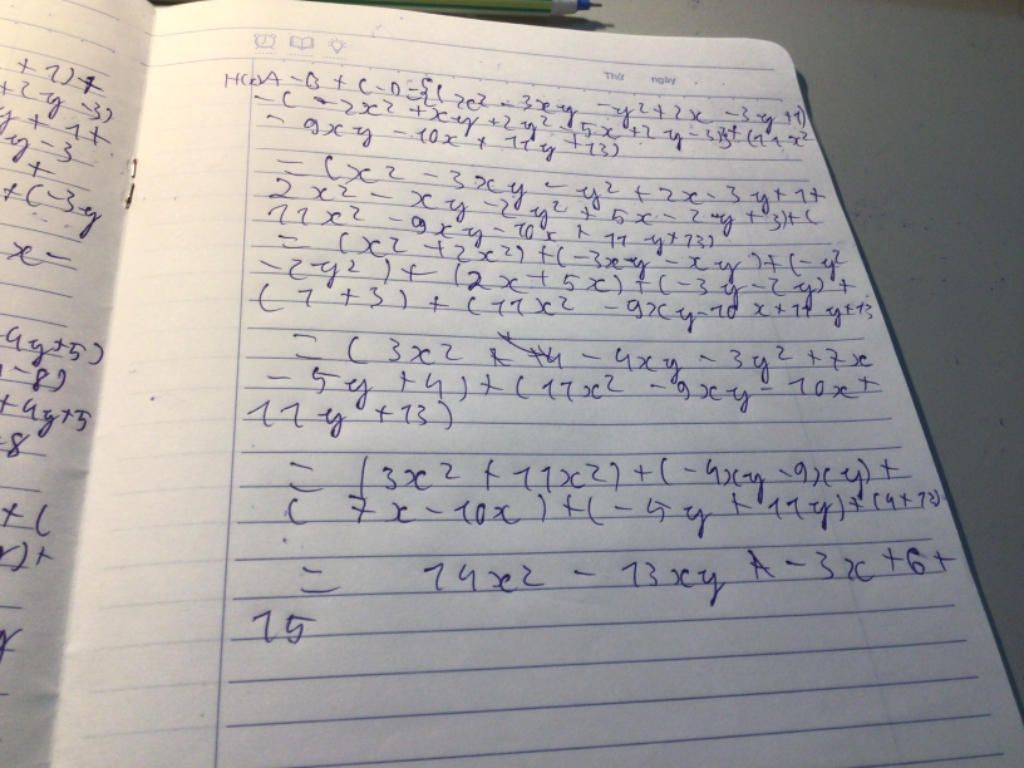 Thứ ngày
A - B + C - D = {( x2 - 3xy - y2 + 2x - 3y + 1)
- ( - 2x2 + xy + 2y2 - 5x + 2y - 3)}+ (11x2
- 9xy - 10x + 11y + 13)
= (x2 - 3xy - y2 + 2x - 3y + 1 +
2x2 - xy - 2y2 + 5x - 2y + 3) + (
11x2 - 9xy - 10x + 11y + 13)
= (x2 + 2x2) + (-3xy - xy) + (-y2
- 2y2) + (2x + 5x) + (-3y - 2y) +
(1 + 3) + (11x2 - 9xy - 10x + 11y + 13
= (3x2 - 4xy - 3y2 + 7x
- 5y + 4) + (11x2 - 9xy - 10x +
11y + 13)
= (3x2 + 11x2) + (-4xy - 9xy) +
( 7x - 10x) + (-5y + 11y) + (4 + 13)
= 14x2 - 13xy - 3x + 6 +
15
+ 2y - 3)
y + 1 +
2y - 3
+
+ (-3y
x -
-4y+5)
- 8)
+ 4y + 5
-8
+ (
) +